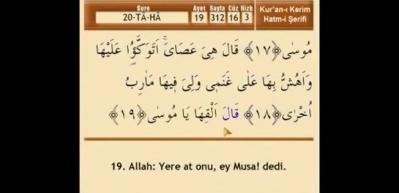 Sure Ayet Sayfa Cüz Hizb
20-TÂ-HÂ 19 312 16 3
Kur'an-ı Kerim
Hatm-i Şerifi
مُوسٰى﴿١٧﴾ قَالَ هِىَ عَصَاىَۚ اَتَوَكَّؤُا عَلَيْهَا
وَاَهُشُّ بِهَا عَلٰى غَنَمٖى وَلِىَ فٖيهَا مَاٰرِبُ
اُخْرٰى﴿١٨﴾ قَالَ اَلْقِهَا يَا مُوسٰى﴿١٩﴾
19. Allah: Yere at onu, ey Musa! dedi.